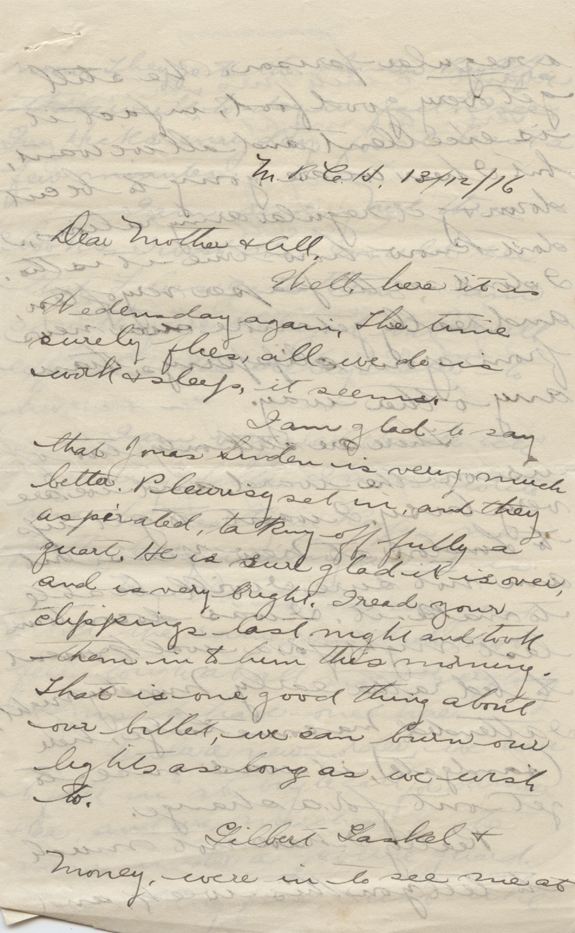 M. B. C. H. 13/12/16
Dear Mother & All,
Well, here it is
Wedensday again. The time
surely flies, all we do is
work & sleep, it seems.
I am glad to say
that Jonas is very much
better. Pleurisy set in, and they
aspirated, taking off fully a
quart. He is sure glad it is over,
and is very bright. I read your
clippings last night and took
them in to him this morning.
That is one good thing about
our billet, we can burn our
lights as long as we wish
to.
Gilbert Gaskel &
Money, were in to see me at